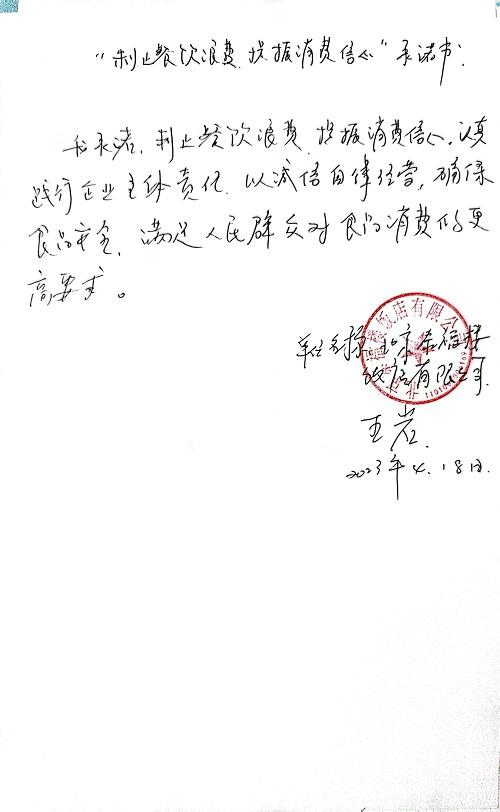 “制止餐饮浪费、提振消费信心”承诺书
我承诺,制止餐饮浪费,提振消费信心,认真
践行企业主体责任,以诚信自律经营,确保
食品安全,满足人民群众对食品消费的更
高要求。
单位名称 北京 福楼
饭店有限公司
王岩
2023年4.18日.
楼饭店有限公